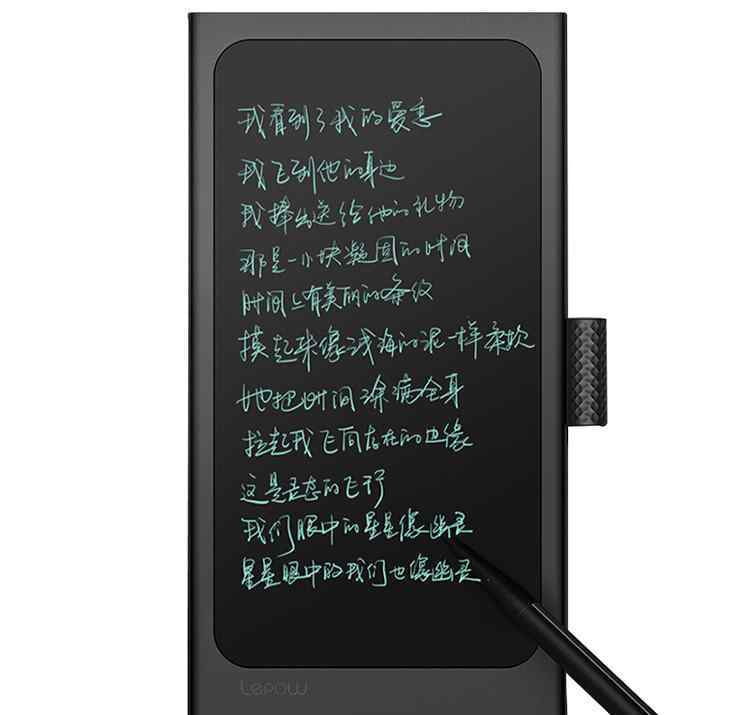 我看到了我的爱恋
我飞到他的身边
我捧出送给他的礼物
那是一小块凝固的时间
时间上有美丽的条纹
摸起来像浅海的泥一样柔软
她把时间涂满全身
拉起我飞向存在的边缘
这是灵态的飞行
我们眼中的星星像幽灵
星星眼中的我们也像幽灵
Lepow